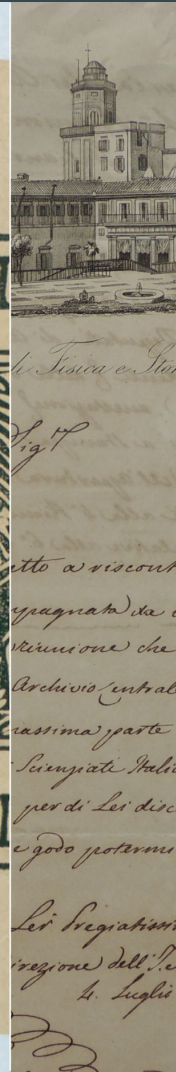 di Fisica e Sto
Sig
etto a riscont
mpagnata da
riunione che
Archivio Central
massima parte
Scienziati Italia
per di Lei
e godo potermi
Lei Pregiatissi
irezione dell'I. e
4. Luglio